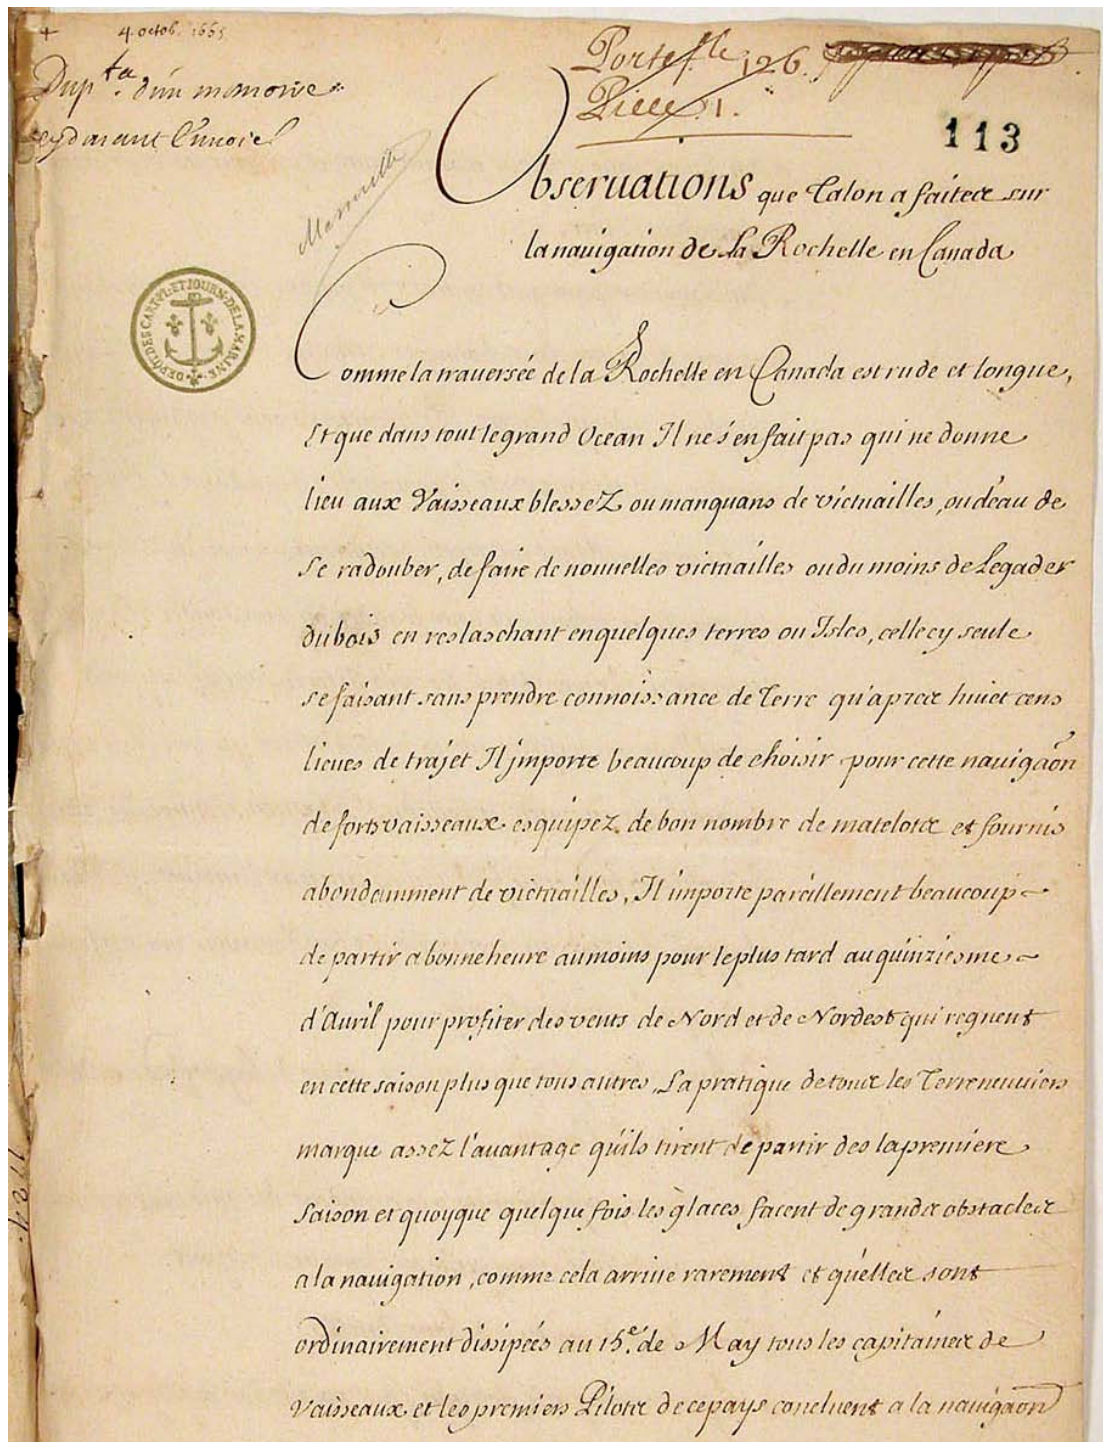 4 octob. 1665
Portef.le 126.
Dup.ta d'un memoire
Piece 1.
cydavant Envoié
113
Observations que Talon a faites sur
la navigation de la Rochelle en Canada
DEPOT DES CARTES PL. ET JOURN. DE LA MARINE
Comme la traversée de la Rochelle en Canada est rude et longue,
Et que dans tout le grand Ocean Il ne s'en fait pas qui ne donne
lieu aux Vaisseaux blessez ou manquans de victuailles, ou d'eau de
se radouber, de faire de nouvelles victuailles ou du moins de
du bois en reslaschant en quelques terres ou Isles, celle cy seule
se faisant sans prendre connoissance de Terre qu'apres huict cens
lieues de trajet Il jmporte beaucoup de choisir pour cette navigãon
de forts vaisseaux esquipez de bon nombre de matelots et fournis
abondamment de victuailles, Il importe pareillement beaucoup
de partir a bonne heure au moins pour le plus tard au quinziesme
d'Avril pour profiter des vents de Nord et de Nordest qui regnent
en cette saison plus que tous autres, La pratique de tous les Terreneuviers
marque assez l'avantage qu'ils tirent de partir des la premiere
saison et quoyque quelque fois les glaces facent de grands obstacles
a la navigation, comme cela arrive rarement et qu'elles sont
ordinairement dissipées au 15.e de May tous les capitaines de
Vaisseaux et les premiers Pilotes de ce pays concluent a la navigãon